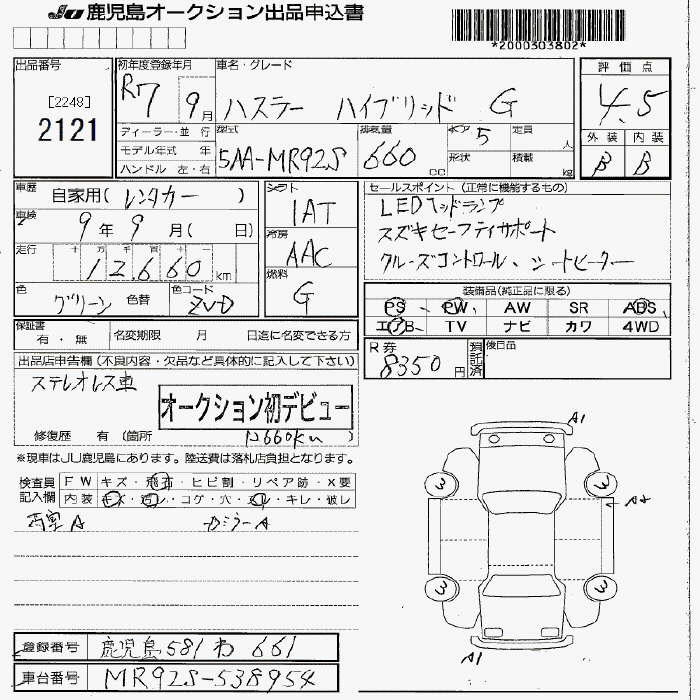 JU 鹿児島オークション出品申込書
*2000303802*
出品番号
[2248]
2121
初年度登録年月
R7 9月
車名・グレード
ハスラー ハイブリッド G
評価点
4.5
外装 内装
B B
ディーラー・並行
モデル年式 年
ハンドル 左・右
型式
5AA-MR92S
排気量
660 CC
ドア 5 定員 人
形状 積載 kg
車歴 自家用(レンタカー)
車検 9年9月(日)
走行 十万千百十一
12,660 km
色 グリーン 色替 色コード ZVD
シフト
IAT
冷房
AAC
燃料
G
セールスポイント(正常に機能するもの)
LEDヘッドランプ
スズキセーフティサポート
クルーズコントロール、シートヒーター
装備品(純正品に限る)
PS PW AW SR ABS
エアB TV ナビ カワ 4WD
保証書 有・無 名変期限 月 日迄に名変できる方
R券 8350円 預託済 後日品
出品店申告欄(不良内容・欠品など具体的に記入して下さい)
ステレオレス車
オークション初デビュー
修復歴 有(箇所 12660km)
※現車はJU鹿児島にあります。陸送費は落札店負担となります。
検査員記入欄
FW キズ・飛石・ヒビ割・リペア跡・×要
内装 キズ・コゲ・穴・キレ・破レ
A1
3 3
A2
3 3
A1
登録番号 鹿児島 581 わ 661
車台番号 MR92S-538954